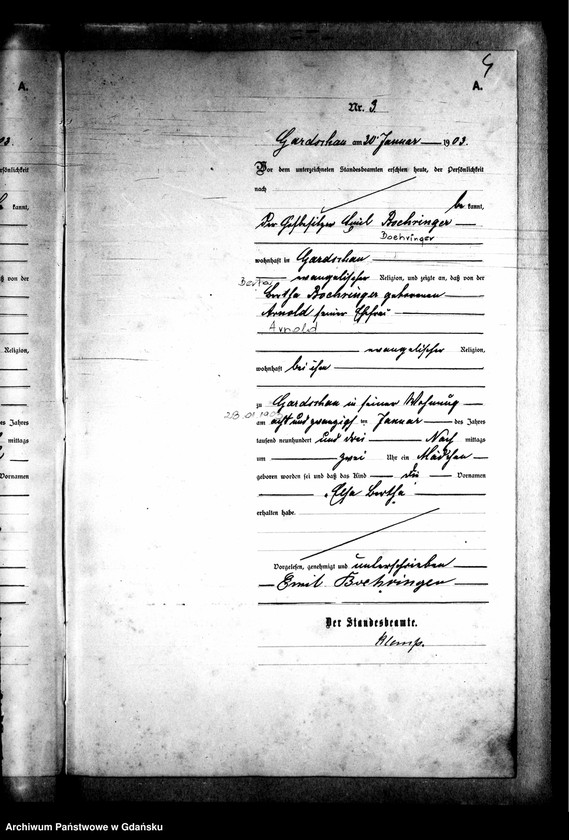 A.
03.
rsönlichkeit
kannt,
ß von der
Religion,
des Jahres
mittags
Vornamen
9
A.
Nr. 3
Gardschau am 30 Januar 1903.
Vor dem unterzeichneten Standesbeamten erschien heute, der Persönlichkeit
nach
be kannt,
Der Hofbesitzer Emil Boehringer
Boehringer
wohnhaft in Gardschau
evangelischer Religion, und zeigte an, daß von der
Berta
Bertha Boehringer geborenen
Arnold seiner Ehefrau
Arnold
evangelischer Religion,
wohnhaft bei ihm
zu Gardschau in seiner Wohnung
28.01.1903
am acht und zwanzigsten Januar des Jahres
tausend neunhundert und drei Nach mittags
um zwei Uhr ein Mädchen
geboren worden sei und daß das Kind die Vornamen
Elsa Bertha
erhalten habe.
Vorgelesen, genehmigt und unterschrieben
Emil Boehringer
Der Standesbeamte.
Archiwum Państwowe w Gdańsku